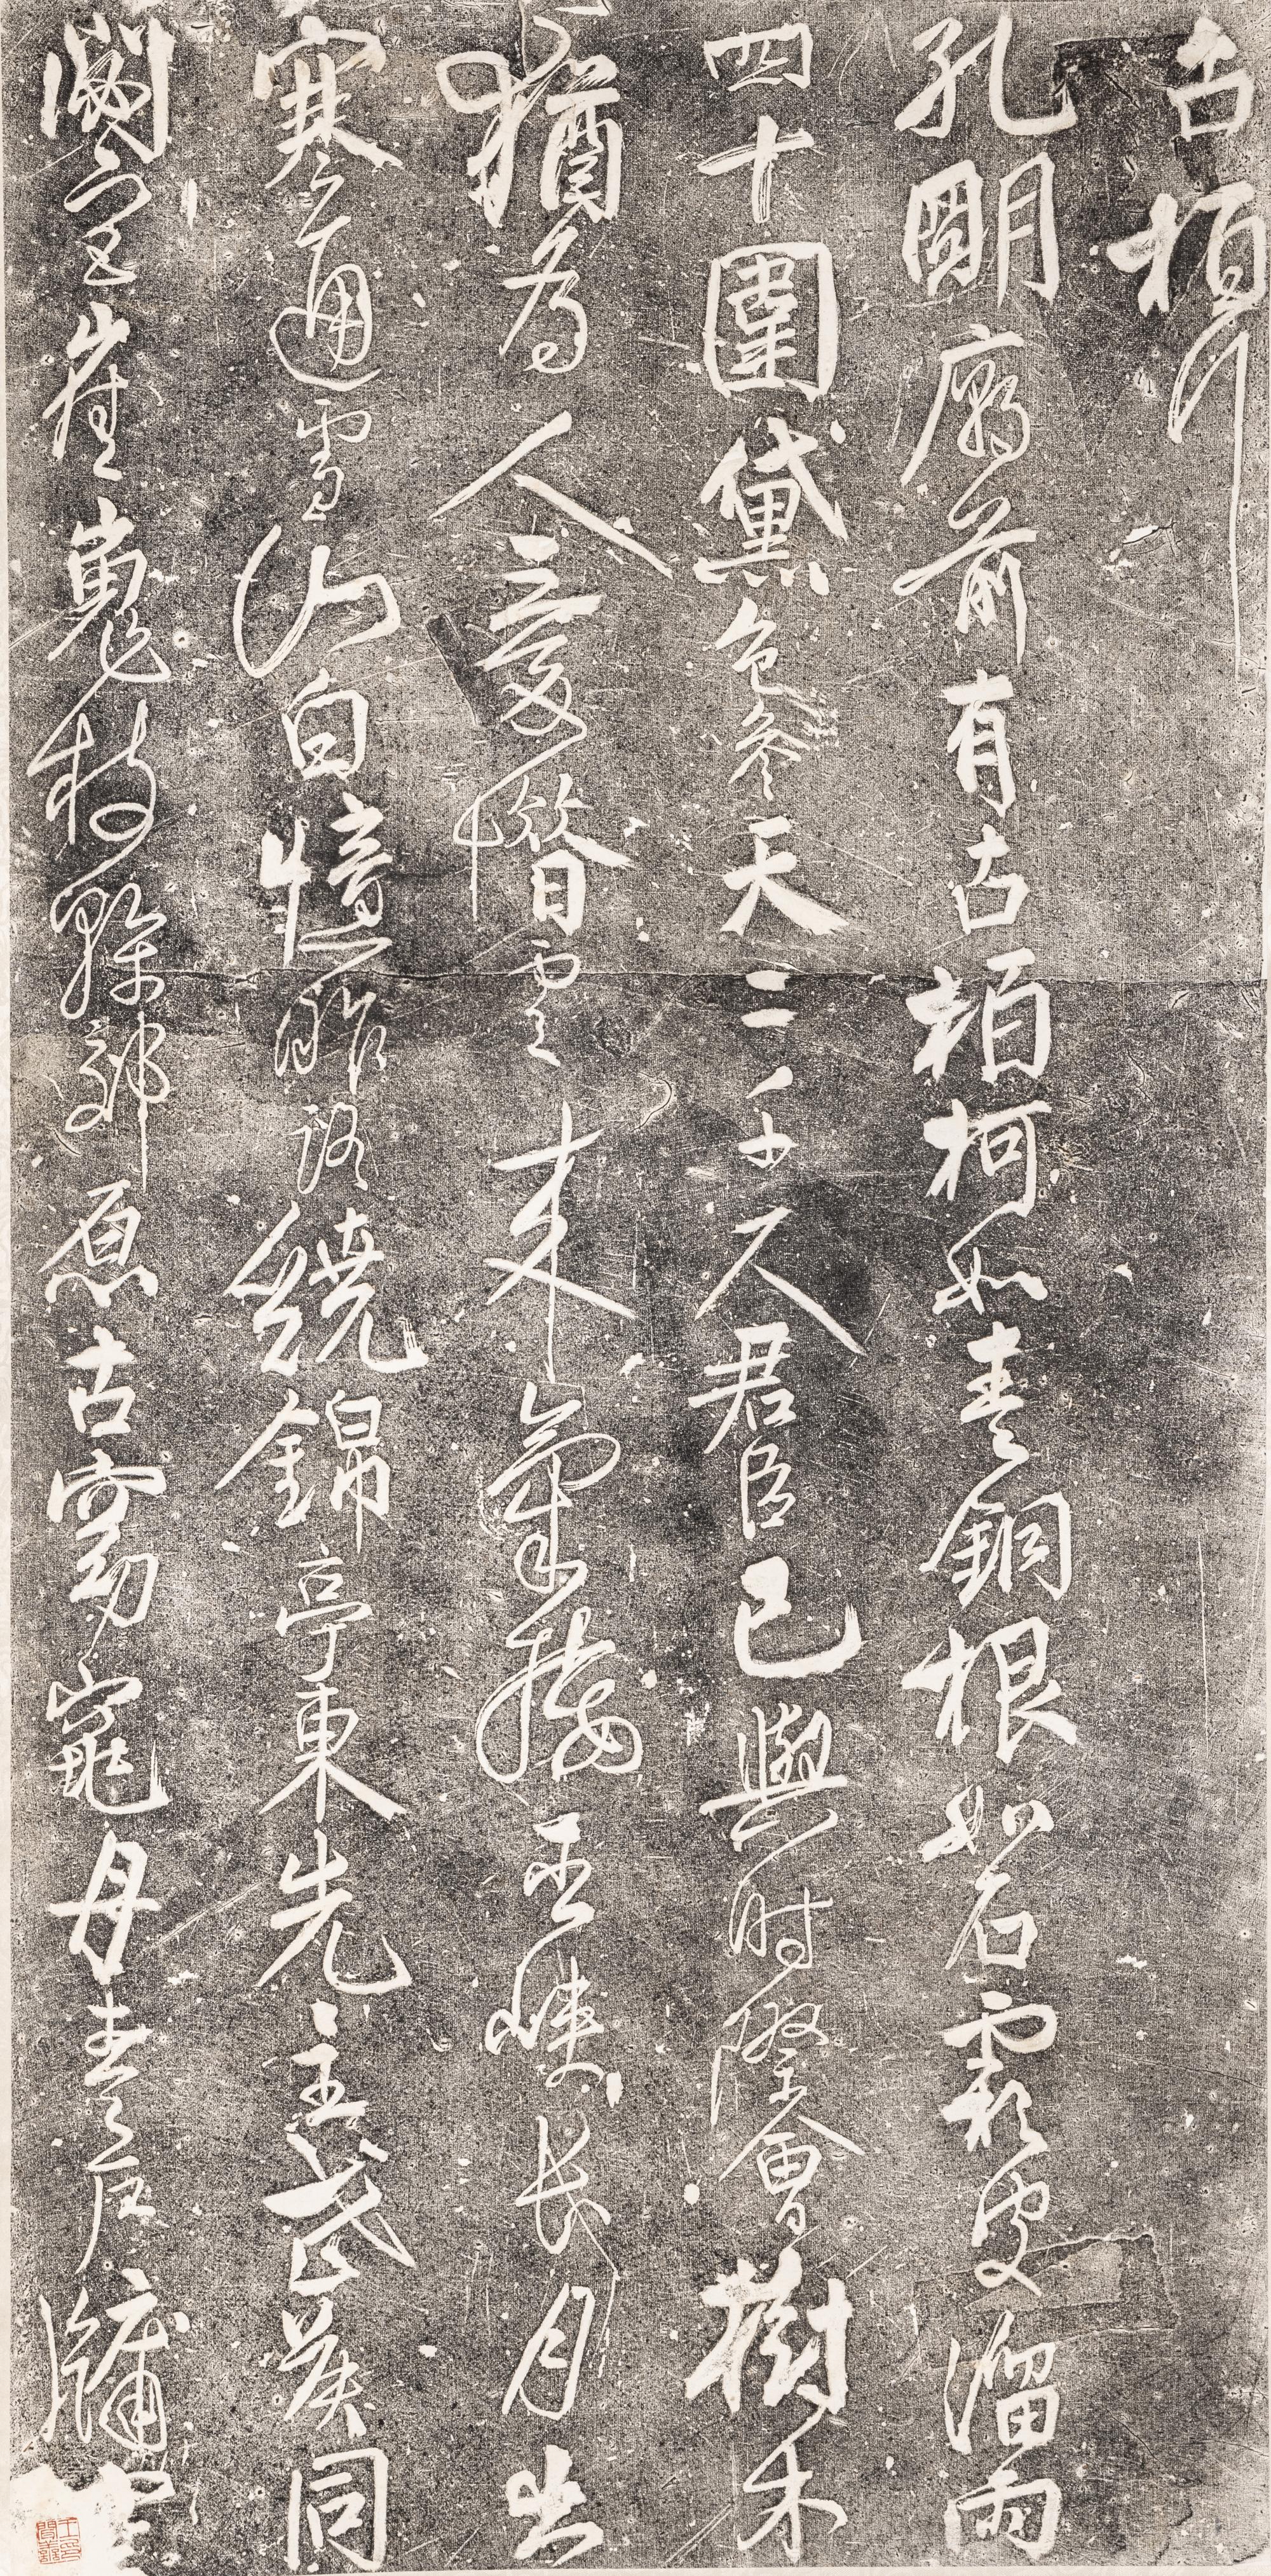 古柏行
孔明廟前有古柏柯如青銅根如石霜皮溜雨
四十圍黛色參天二千尺君臣已與時際會樹木
猶為人愛惜雲來氣接巫峽長月出
寒通雪山白憶昨路繞錦亭東先主武侯同
閟宮崔嵬枝幹郊原古窈窕丹青戶牖